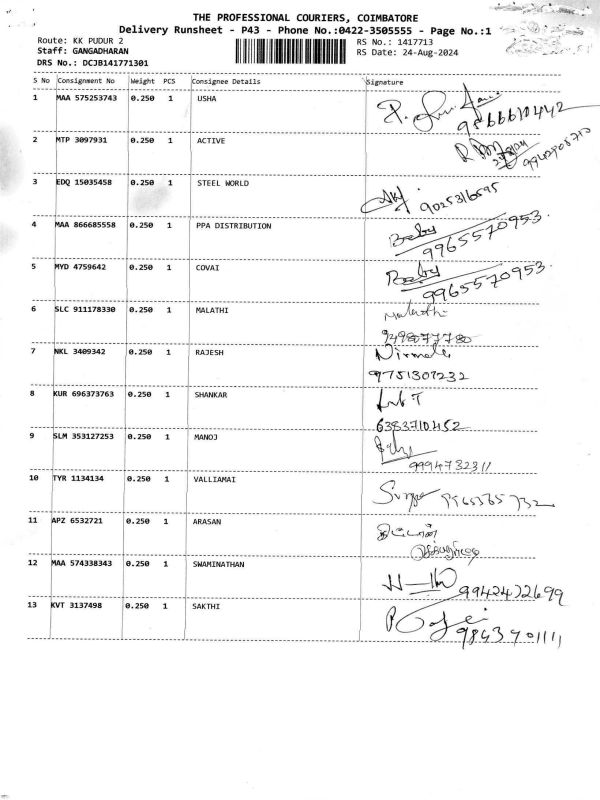 THE PROFESSIONAL COURIERS, COIMBATORE
Delivery Runsheet - P43 - Phone No.:0422-3505555 - Page No.:1
Route: KK PUDUR 2 RS No.: 1417713
Staff: GANGADHARAN RS Date: 24-Aug-2024
DRS No.: DCJB141771301
S No Consignment No Weight PCS Consignee Details Signature
1 MAA 575253743 0.250 1 USHA
9566610442
2 MTP 3097931 0.250 1 ACTIVE
3 EDQ 15035458 0.250 1 STEEL WORLD
9025316595
4 MAA 866685558 0.250 1 PPA DISTRIBUTION Baby
9965570953
5 MYD 4759642 0.250 1 COVAI Baby
9965570953
6 SLC 911178330 0.250 1 MALATHI Malathi
9498077780
7 NKL 3409342 0.250 1 RAJESH Nirmala
9751307232
8 KUR 696373763 0.250 1 SHANKAR
6383710452
9 SLM 353127253 0.250 1 MANOJ
9994732311
10 TYR 1134134 0.250 1 VALLIAMAI
9965365732
11 APZ 6532721 0.250 1 ARASAN
12 MAA 574338343 0.250 1 SWAMINATHAN
9942422699
13 KVT 3137498 0.250 1 SAKTHI
9843901111